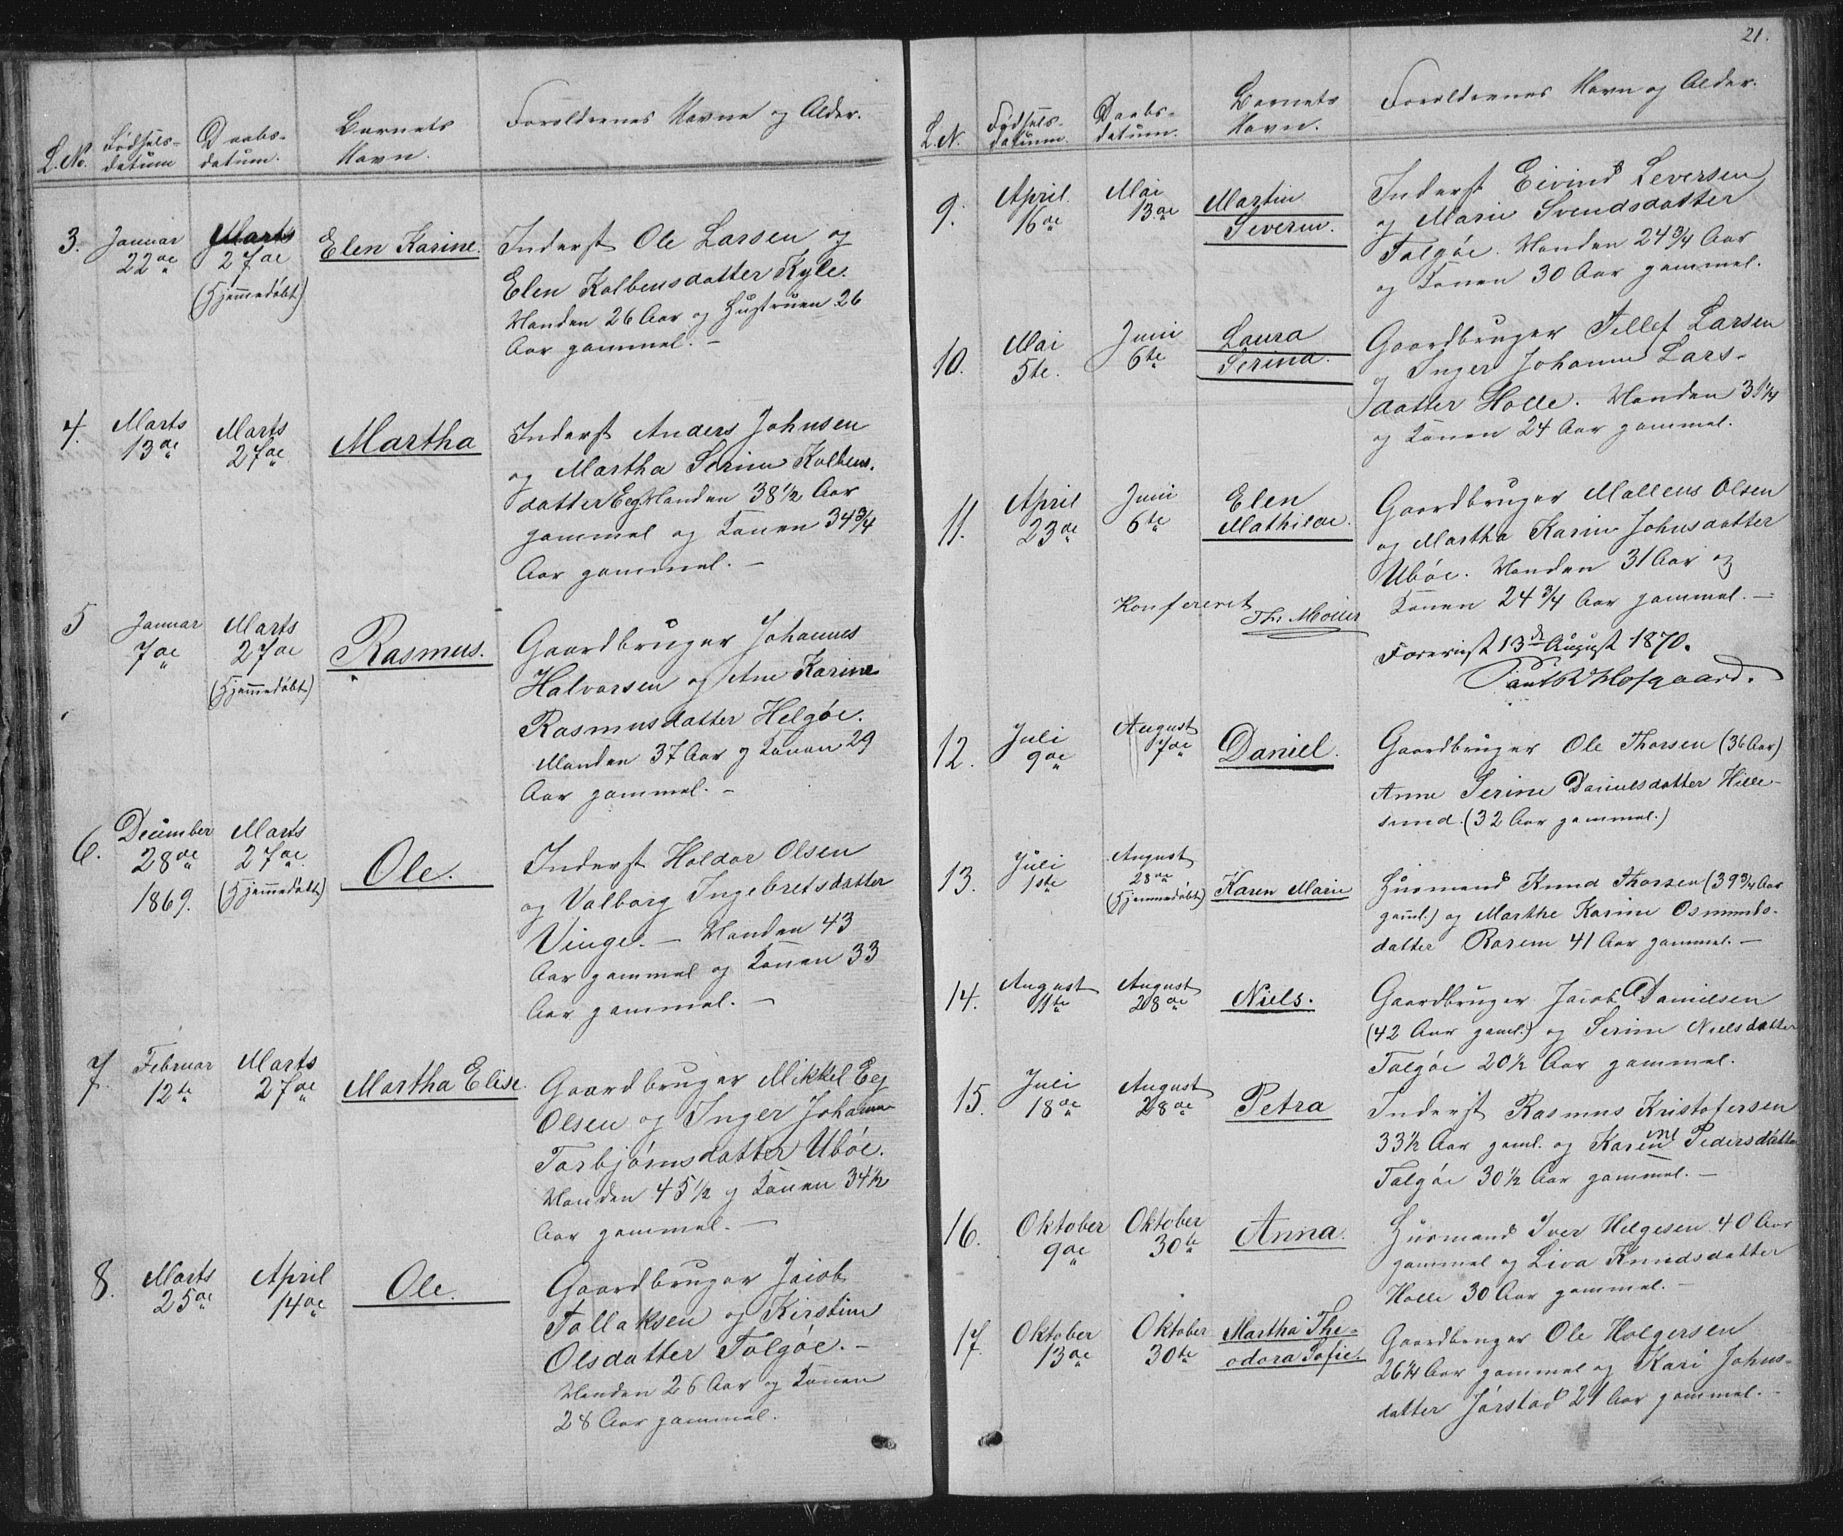 L.No.
Fødsels-
datum
Daabs-
datum.
Barnets
Navn.
Forældrenes Navne og Alder.
3.
Januar
22de
Marts
27de
(Hjemmedøbt)
Elen Karine.
Inderst Ole Larsen og
Elen Kolbensdatter Kyle.
Manden 26 Aar og Hustruen 26
Aar gammel. –
4.
Marts
13de
Marts
27de
Martha
Inderst Anders Johnsen
og Martha Serine Kolbens-
datter Eeg Manden 38½ Aar
gammel og Konen 34¾
Aar gammel. –
5
Januar
7de
Marts
27de
(Hjemmedøbt)
Rasmus.
Gaardbruger Johannes
Halvorsen og Ane Karine
Rasmusdatter Helgøe.
Manden 37 Aar og Konen 29
Aar gammel. –
6.
December
28de
1869.
Marts
27de
(Hjemmedøbt)
Ole.
Inderst Haldor Olsen
og Valborg Ingebretsdatter
Vinge. – Manden 43
Aar gammel og Konen 33
Aar gammel. –
7.
Februar
12te
Marts
27de
Martha Elise.
Gaardbruger Mikkel Eeg
Olsen og Inger Johanne
Torbjørnsdatter Ubøe.
Manden 45½ og Konen 34½
Aar gammel. –
8.
Marts
25de
April
14de
Ole.
Gaardbruger Jacob
Tollaksen og Kirstine
Olsdatter Talgøe. –
Manden 26 Aar og Konen
28 Aar gammel.
21.
L.N.
Fødsels-
datum.
Daabs-
datum.
Barnets
Navn.
Forældrenes Navn og Alder.
9.
April
16de
Mai
13de
Martin
Severin.
Inderst Eivind Seversen
og Marie Svendsdatter
Talgøe. Manden 24¾ Aar
og Konen 30 Aar gammel.
10.
Mai
5te.
Juni
6te
Laura
Serina.
Gaardbruger Tellef Larsen
og Inger Johanne Lars-
datter Halle. Manden 31¼
og Konen 24 Aar gammel.
11.
April
23de
Juni
6te
Elen
Mathilde.
Gaardbruger Malleus Olsen
og Martha Karine Johnsdatter
Ubøe. Manden 31 Aar og
Konen 24¾ Aar gammel. –
Konfereret
Th. Møller
Forevist 13de August 1870.
Hofgaard.
12.
Juli
9de
August
17de
Daniel.
Gaardbruger Ole Thorsen (36 Aar)
Anne Serine Danielsdatter Hille-
sund. (32 Aar gammel.)
13.
Juli
1ste
August
28de
(Hjemmedøbt)
Karen Marie
Husmand Knud Thorsen (39¾ Aar
gaml.) og Marthe Karine Osmunds-
datter Rosem 41 Aar gammel. –
14.
August
11te
August
28de
Niels.
Gaardbruger Jacob Danielsen
(42 Aar gaml.) og Serine Nielsdatter
Talgøe 20½ Aar gammel.
15.
Juli
18de
August
28de
Petra
Inderst Rasmus Kristofersen
33½ Aar gaml. og Karen Pedersdatter
Talgøe 30½ Aar gammel. –
16.
Oktober
9de
Oktober
30te
Anna.
Husmand Iver Helgesen 40 Aar
gammel og Liva Knudsdatter
Halle 30 Aar gammel. –
17.
Oktober
13de
Oktober
30te
Martha The-
odora Sofie.
Gaardbruger Ole Holgersen
26¼ Aar gammel og Kari Johns-
datter Jørstad 21 Aar gammel. –